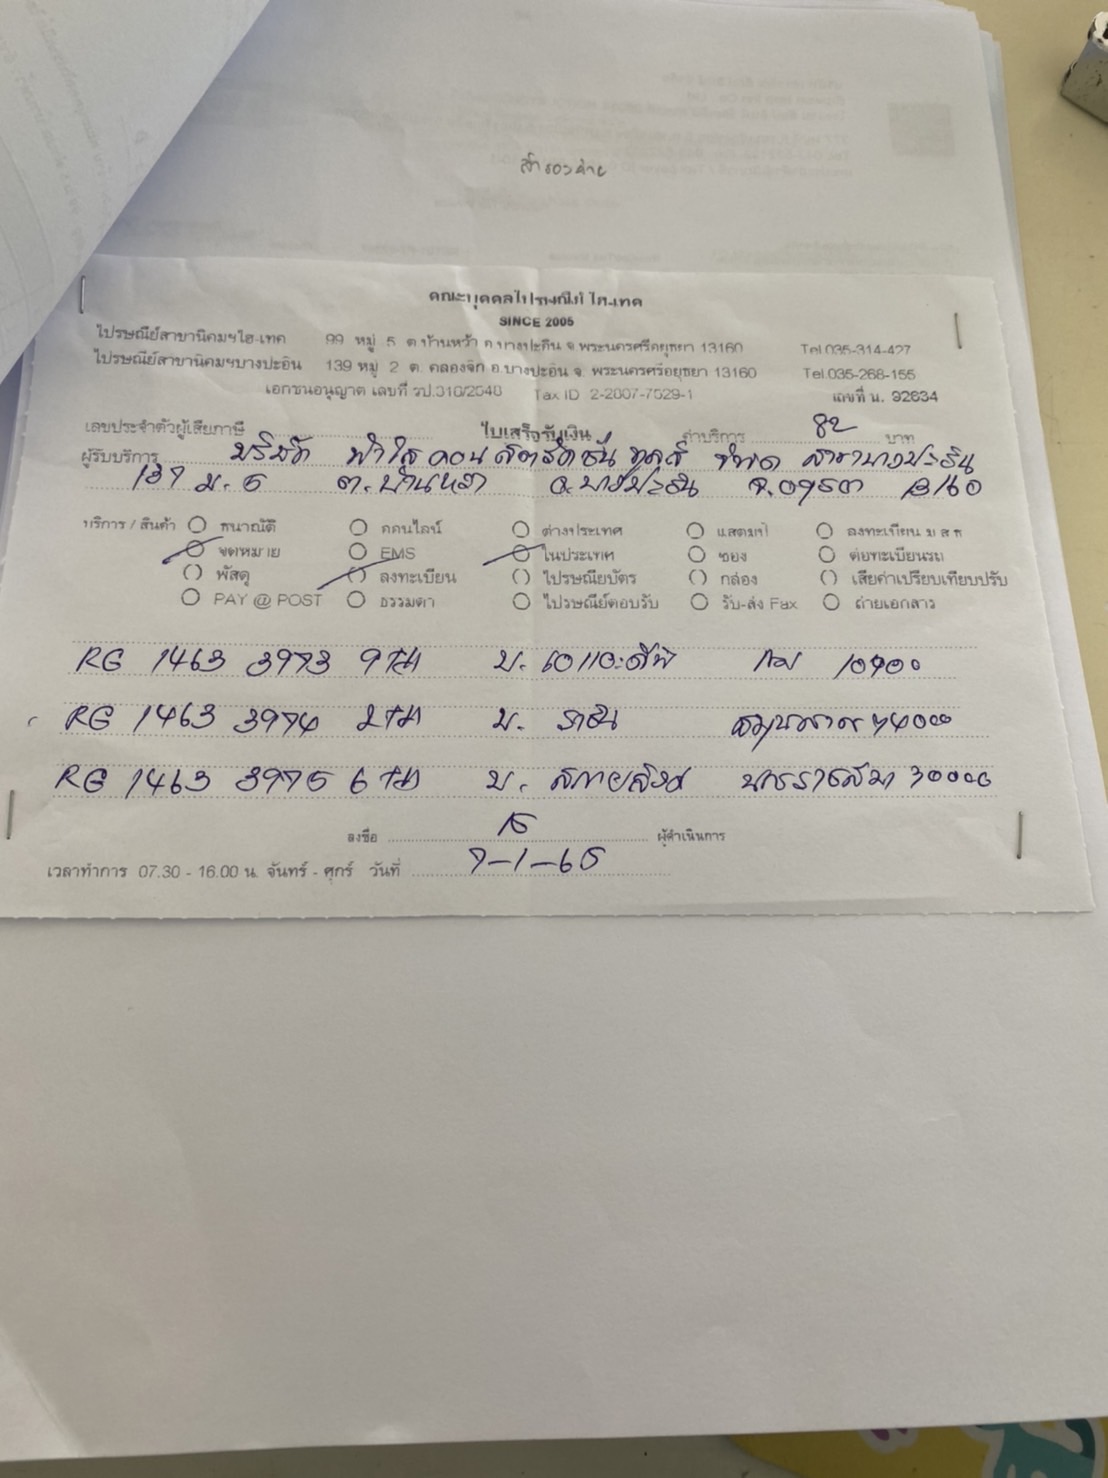 สำรองจ่าย
คณะบุคคลไปรษณีย์ ไฮเทค
SINCE 2005
ไปรษณีย์สาขานิคมฯไฮ-เทค 99 หมู่ 5 ต.บ้านหว้า อ.บางปะอิน จ.พระนครศรีอยุธยา 13160 Tel.035-314-427
ไปรษณีย์สาขานิคมฯบางปะอิน 139 หมู่ 2 ต. คลองจิก อ.บางปะอิน จ. พระนครศรีอยุธยา 13160 Tel.035-268-155
เอกชนอนุญาต เลขที่ รป.310/2548 Tax ID 2-2007-7529-1 เลขที่ น. 92634
เลขประจำตัวผู้เสียภาษี ใบเสร็จรับเงิน ค่าบริการ 82 บาท
ผู้รับบริการ บริษัท คอนสตรัคชั่น ทูลส์ จำกัด สาขาบางปะอิน
137 ม.5 ต.บ้านหว้า อ.บางปะอิน จ.อยุธยา 13160
บริการ / สินค้า ธนาณัติ ออนไลน์ ต่างประเทศ แสตมป์ ลงทะเบียน ม ส ท
จดหมาย EMS ในประเทศ ซอง ต่อทะเบียนรถ
พัสดุ ลงทะเบียน ไปรษณียบัตร กล่อง เสียค่าเปรียบเทียบปรับ
PAY @ POST ธรรมดา ไปรษณีย์ตอบรับ รับ-ส่ง Fax ถ่ายเอกสาร
RG 1463 3973 9 TH บ. กทม 10900
RG 1463 3974 2 TH บ. สมุทรสาคร 74000
RG 1463 3975 6 TH บ. นครราชสีมา 30000
ลงชื่อ ผู้ดำเนินการ
เวลาทำการ 07.30 - 16.00 น. จันทร์ - ศุกร์ วันที่ 7-1-65